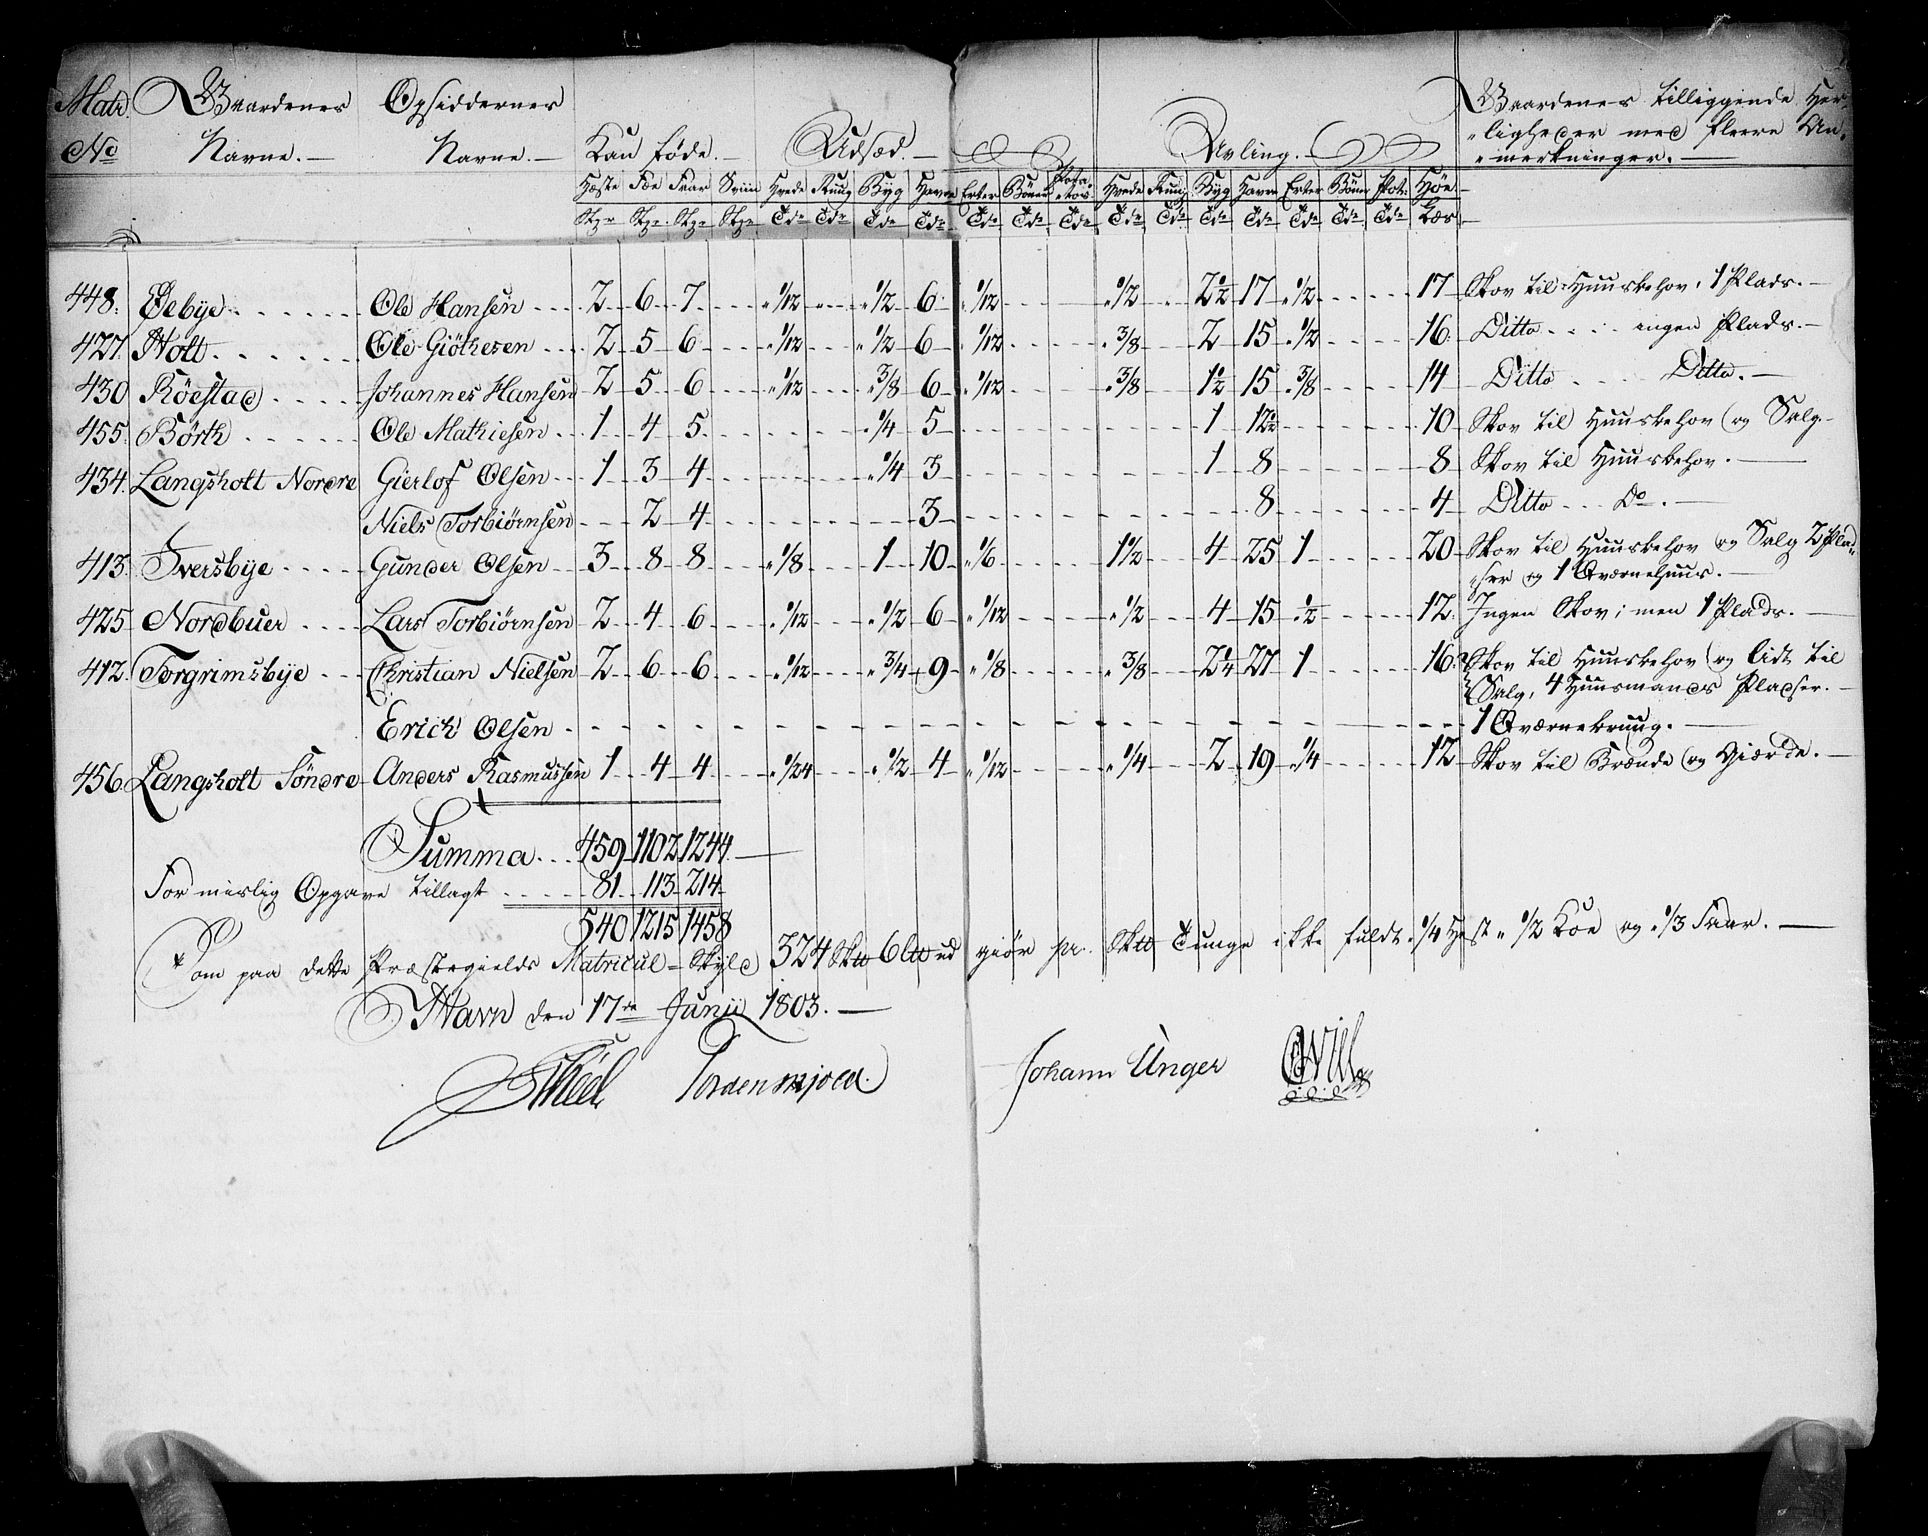 Matr. Gaardenes Opsiddernes Kan føde. Udsæd. Avling. Gaardenes tilliggende Her-
No Navne. Navne. ligheder med fleere An-
mærkninger.
Hæste Fæe Faar Sviin Hvede Ruug Byg Havre Erter Bönner Potatos Hvede Ruug Byg Havre Erter Bönner Pot: Höe
Stkr Stkr Stkr Stkr Tdr Tdr Tdr Tdr Tdr Tdr Tdr Tdr Tdr Tdr Tdr Tdr Tdr Tdr Læs
448. Ole Hansen 2 6 7 1/12 1/2 6 1/12 1/2 2 1/2 17 1/2 17 Skov til Huusbehov, 1 Plads.
427. Holt Ole Giöthesen 2 5 6 1/12 1/2 6 1/12 3/8 2 15 1/2 16 Ditto ingen Plads.
430 Röestad Johannes Hansen 2 5 6 1/12 3/8 6 1/12 3/8 1 1/2 15 3/8 14 Ditto Ditto.
455. Börk Ole Mathiesen 1 4 5 1/4 5 1 12 1/2 10 Skov til Huusbehov og Salg
434. Langsholt Nordre Gierlof Olsen 1 3 4 1/4 3 1 8 8 Skov til Huusbehov.
Niels Torbiörnsen 2 4 3 8 4 Ditto Do.
413. Iversbye Gunder Olsen 3 8 8 1/8 1 10 1/6 1 1/2 4 25 1 20 Skov til Huusbehov og Salg 2 Plad-
ser og 1 Qværnehuus.
425 Nordbuer Lars Torbiörnsen 2 4 6 1/12 1/2 6 1/12 1/2 4 15 1/2 12 Ingen Skov; men 1 Plads.
412. Torgrimsbye Christian Nielsen 2 6 6 1/12 3/4 9 1/8 3/8 2 1/4 27 1 16 Skov til Huusbehov og lidt til
Salg, 4 Huusmands Pladser.
Erich Olsen 1 Qværnebruug.
456. Langsholt Söndre Anders Rasmussen 1 4 4 1/24 1/2 4 1/12 1/4 2 19 1/4 12 Skov til Brænde og Giærde.
Summa 459 1102 1244
For mislig Opgave tillagt 81 113 214
540 1215 1458
Som paa dette Præstegields Matricul-Skyld 324 Sktt 6 ltt ud giör pr. Sktt Tunge ikke fuldt 1/4 Hest, 1/2 Koe og 1/3 Faar.
Havn den 17de Junii 1803.
Tordenskjold. Johann Unger